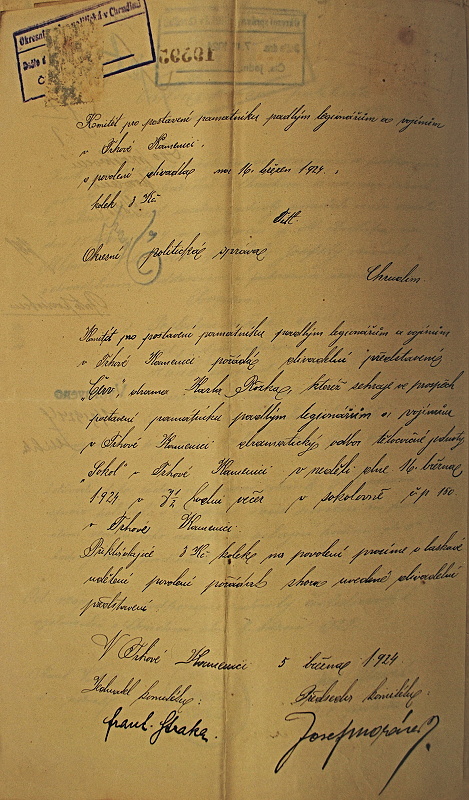 Okresní politická v Chrudimi
Došlo
10292
Komitét pro postavení pamatníku padlým legionářům a vojínům
v Trhové Kamenici.
o povolení divadla na 16. březen 1924.
kolek 3 Kč
Tit.
Okresní politická správa
Chrudim.
Komitét pro postavení pamatníku padlým legionářům a vojínům
v Trhové Kamenici pořádá divadelní představení
drama Karla, kteréž sehraje ve prospěch
postavení pamatníku padlým legionářům a vojínům
v Trhové Kamenici dramatický odbor tělocvičné jednoty
„Sokol" v Trhové Kamenici v neděli dne 16. března
1924 v 7½ hodin večer v sokolovně č.p. 160.
v Trhové Kamenici.
Překládajíce 3 Kč kolek na povolení prosíme o laskavé
udělení povolení pořádat shora uvedené divadelní
představení
V Trhové Kamenici 5 března 1924
Jednatel komitétu: Předseda komitétu:
Frant. Straka. Josef